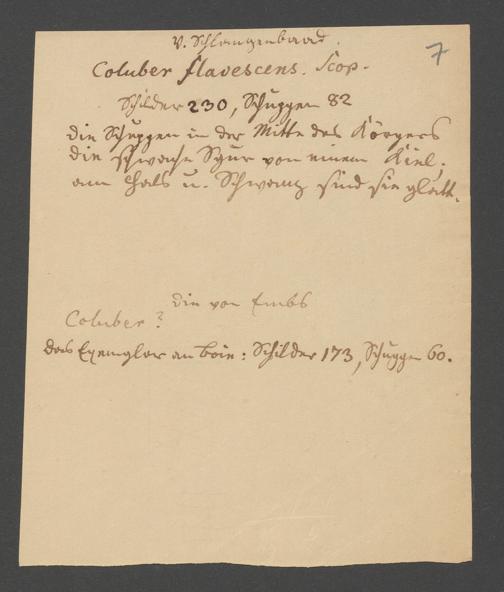 v. Schlangenbaad.
7
Coluber flavescens. Scop.
Schilder 230, Schuppen 82
die Schuppen in der Mitte des Körpers
die schwache Spur von einem Kiel,
am Hals u. Schwanz sind sie glatt.
die von Embs
Coluber?
das Exemplar an Boie: Schilder 173, Schuppen 60.